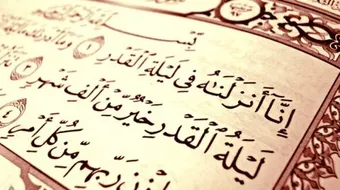 إِنَّا أَنزَلْنَٰهُ فِى لَيْلَةِ ٱلْقَدْرِ ١ وَمَآ أَدْ
لَيْلَةُ ٱلْقَدْرِ خَيْرٌ مِّنْ أَلْفِ شَهْرٍ ٣
إِذْنِ رَبِّهِم مِّن كُلِّ أَمْرٍ ٤